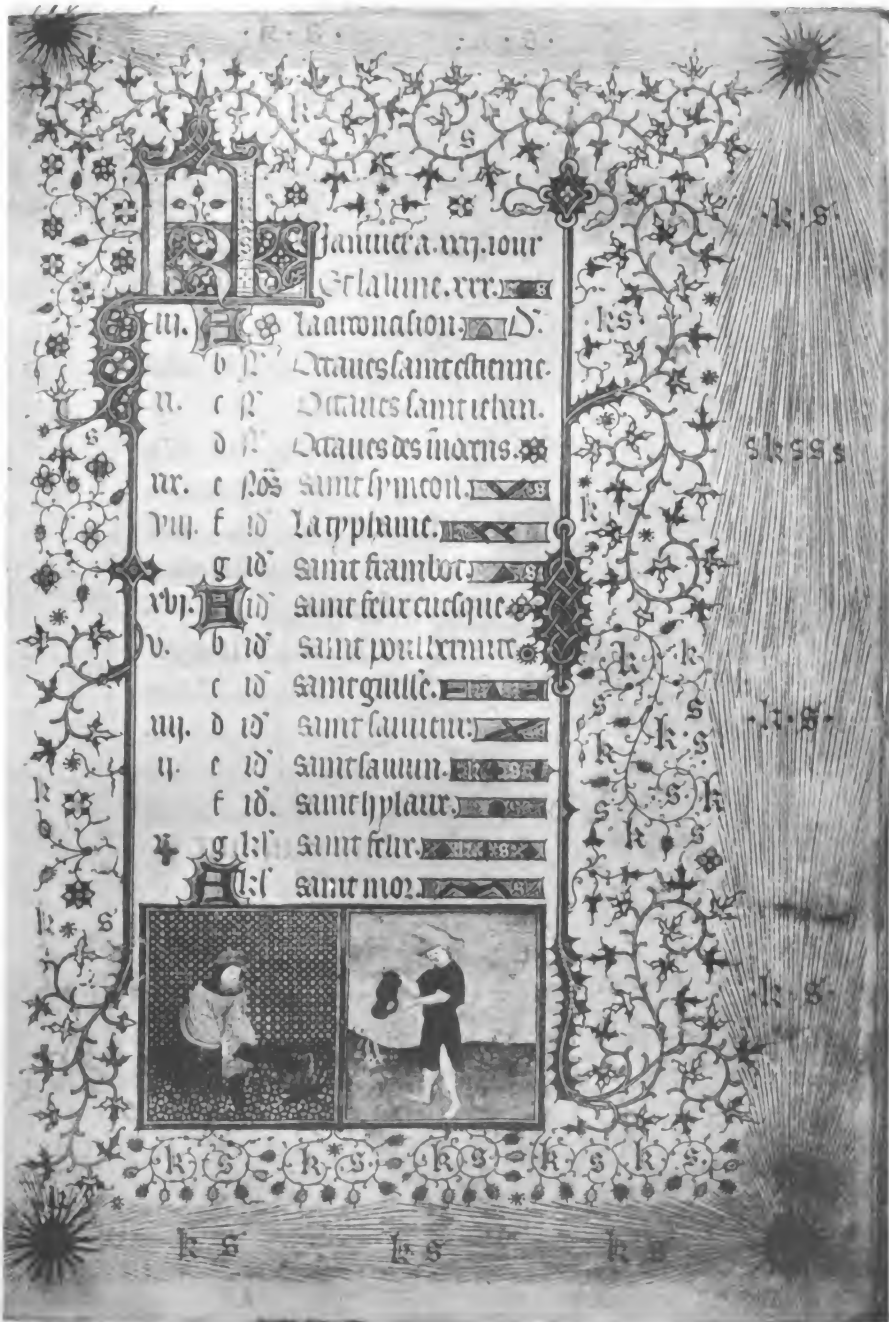 KL Januier a .xxxj. iour
Et la lune .xxx.
iij. A La circoncision. D.
b N Octaues saint estienne.
xi. c N Octaues saint iehan.
d N Octaues des innocens.
xix. e Nos saint symeon.
viij. f id La typhaine.
g id saint frambot.
xvj. A id saint felix euesque
v. b id saint poul hermite
c id saint guille.
xiij. d id saint sauueur.
ij. e id saint sauuin.
f id. saint hylaire.
x. g kl saint felix.
A kl saint mor.
k s
s k s s s
·k·s·
k s
k s k s k s k s k s
k s k s k s